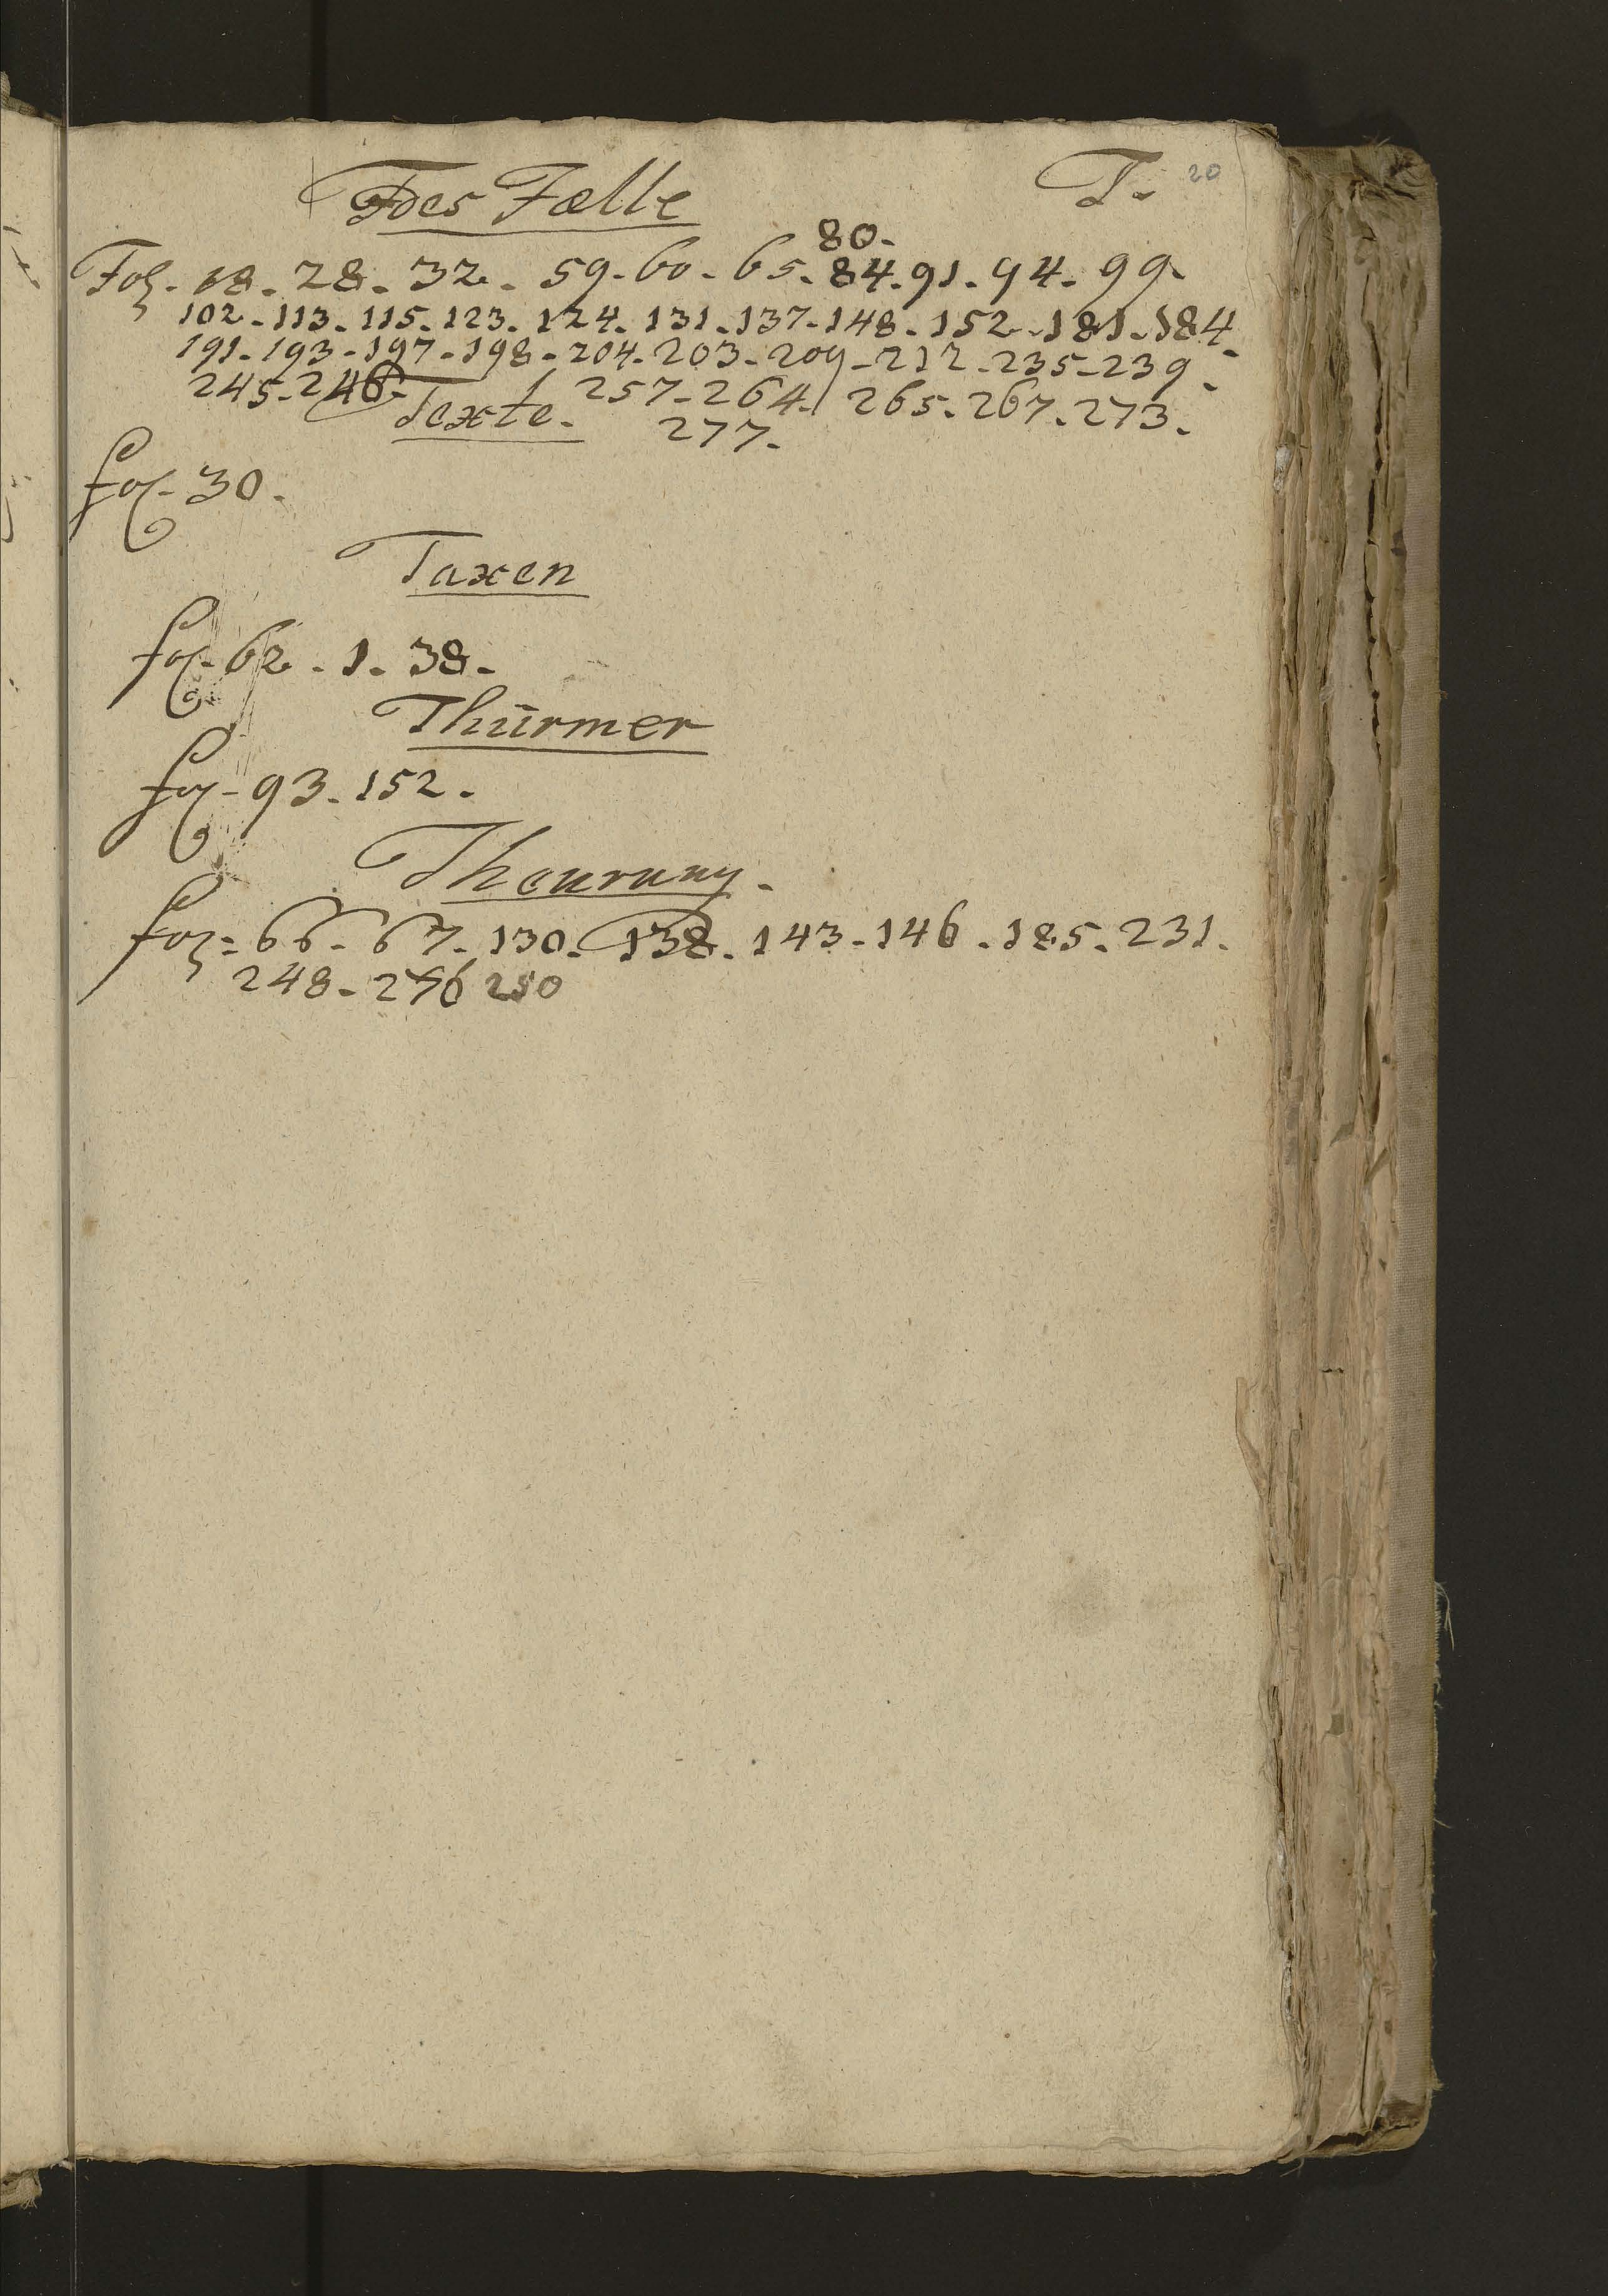 T. 20
Todes Fælle
80.
Fol. 18. 28. 32. 59. 60. 65. 84. 91. 94. 99.
102. 113. 115. 123. 124. 131. 137. 148. 152. 181. 184.
191. 193. 197. 198. 204. 203. 209. 212. 235. 239.
245. 246. 257. 264. 265. 267. 273.
Texte. 277.
fol. 30.
Taxen
fol. 62. 1. 38.
Thürmer
fol. 93. 152.
Theurung.
fol. 66. 67. 130. 138. 143. 146. 185. 231.
248. 256 250